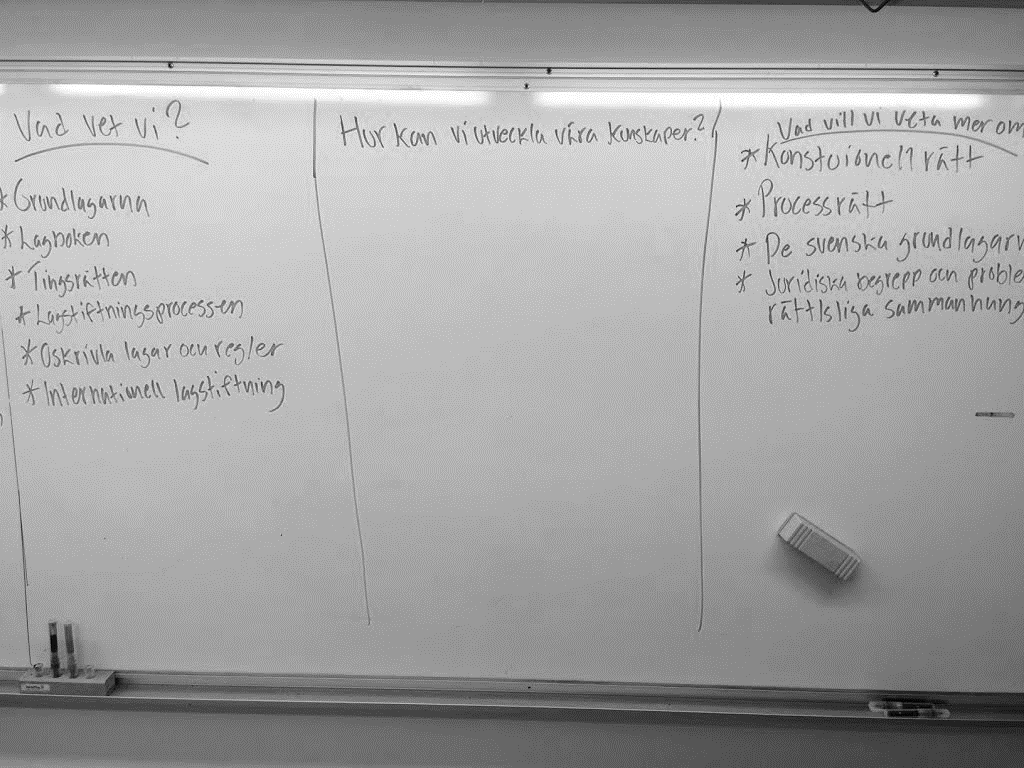 Vad vet vi?
*Grundlagarna
*Lagboken
*Tingsrätten
*Lagstiftningsprocessen
*Oskrivla lagar och regler
*Internatinell lagstiftning
Hur kan vi utveckla våra kunskaper?
Vad vill vi veta mer om
*Konstuionell rätt
*Processrätt
*De svenska grundlagarn
*Juridiska begrepp och proble
rättlsliga sammanhung